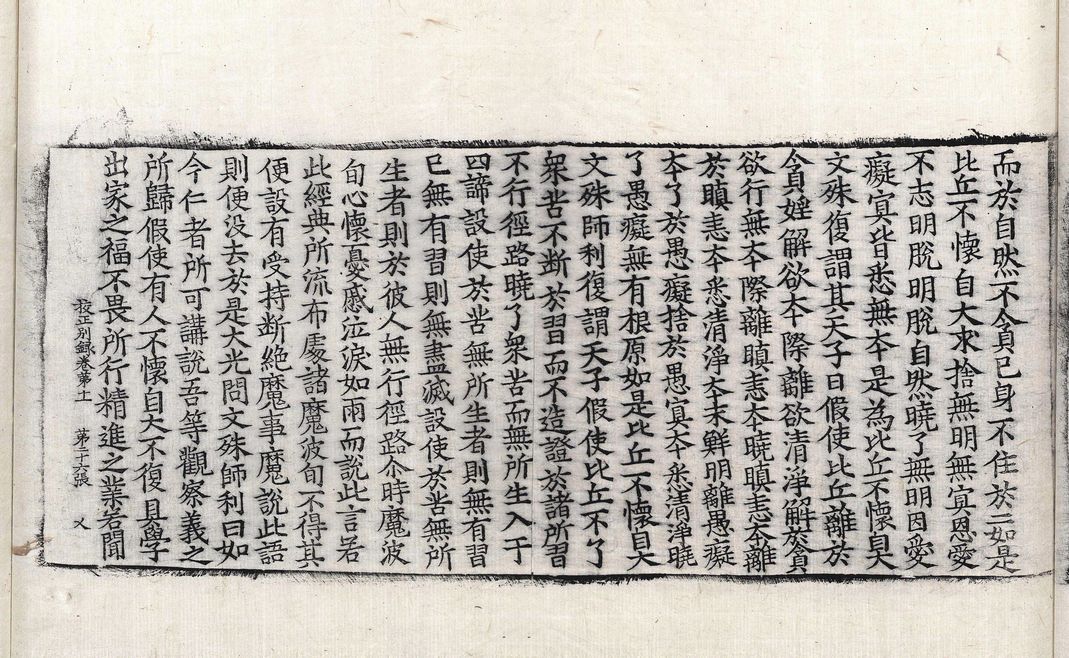 而於自然不貪己身不住於二如是
比丘不懷自大求捨無明無冥恩愛
不志明脫明脫自然曉了無明因愛
癡冥皆悉無夲是為比丘不懷自大
文殊復謂其天子曰假使比丘離於
貪婬解欲夲際離欲清淨解於貪
欲行無夲際離瞋恚夲曉瞋恚夲離
於瞋恚夲悉清淨夲末鮮明離愚癡
夲了於愚癡捨於愚冥夲悉清淨曉
了愚癡無有根原如是比丘不懷自大
文殊師利復謂天子假使比丘不了
衆苦不断於習而不造證於諸所習
不行徑路曉了衆苦而無所生入于
四諦設使於苦無所生者則無有習
已無有習則無盡滅設使於苦無所
生者則於彼人無行徑路尒時魔波
旬心懷憂慼泣淚如雨而說此言若
此經典所流布處諸魔波旬不得其
便設有受持断絶魔事魔說此語
則便没去於是大光問文殊師利曰如
今仁者所可講說吾等觀察義之
所歸假使有人不懷自大不復具學
出家之福不畏所行精進之業若聞
校正別録卷第十 第二十六張 乂